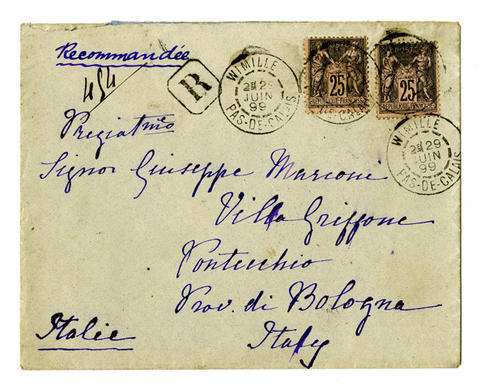 Recommandée
484
R
WIMILLE
2E 29
JUIN
99
PAS-DE-CALAIS
25
25
WIMILLE
2E 29
JUIN
99
PAS-DE-CALAIS
Pregiatmo
Signor Giuseppe Marconi
Villa Griffone
Pontecchio
Prov. di Bologna
Italie
Italy